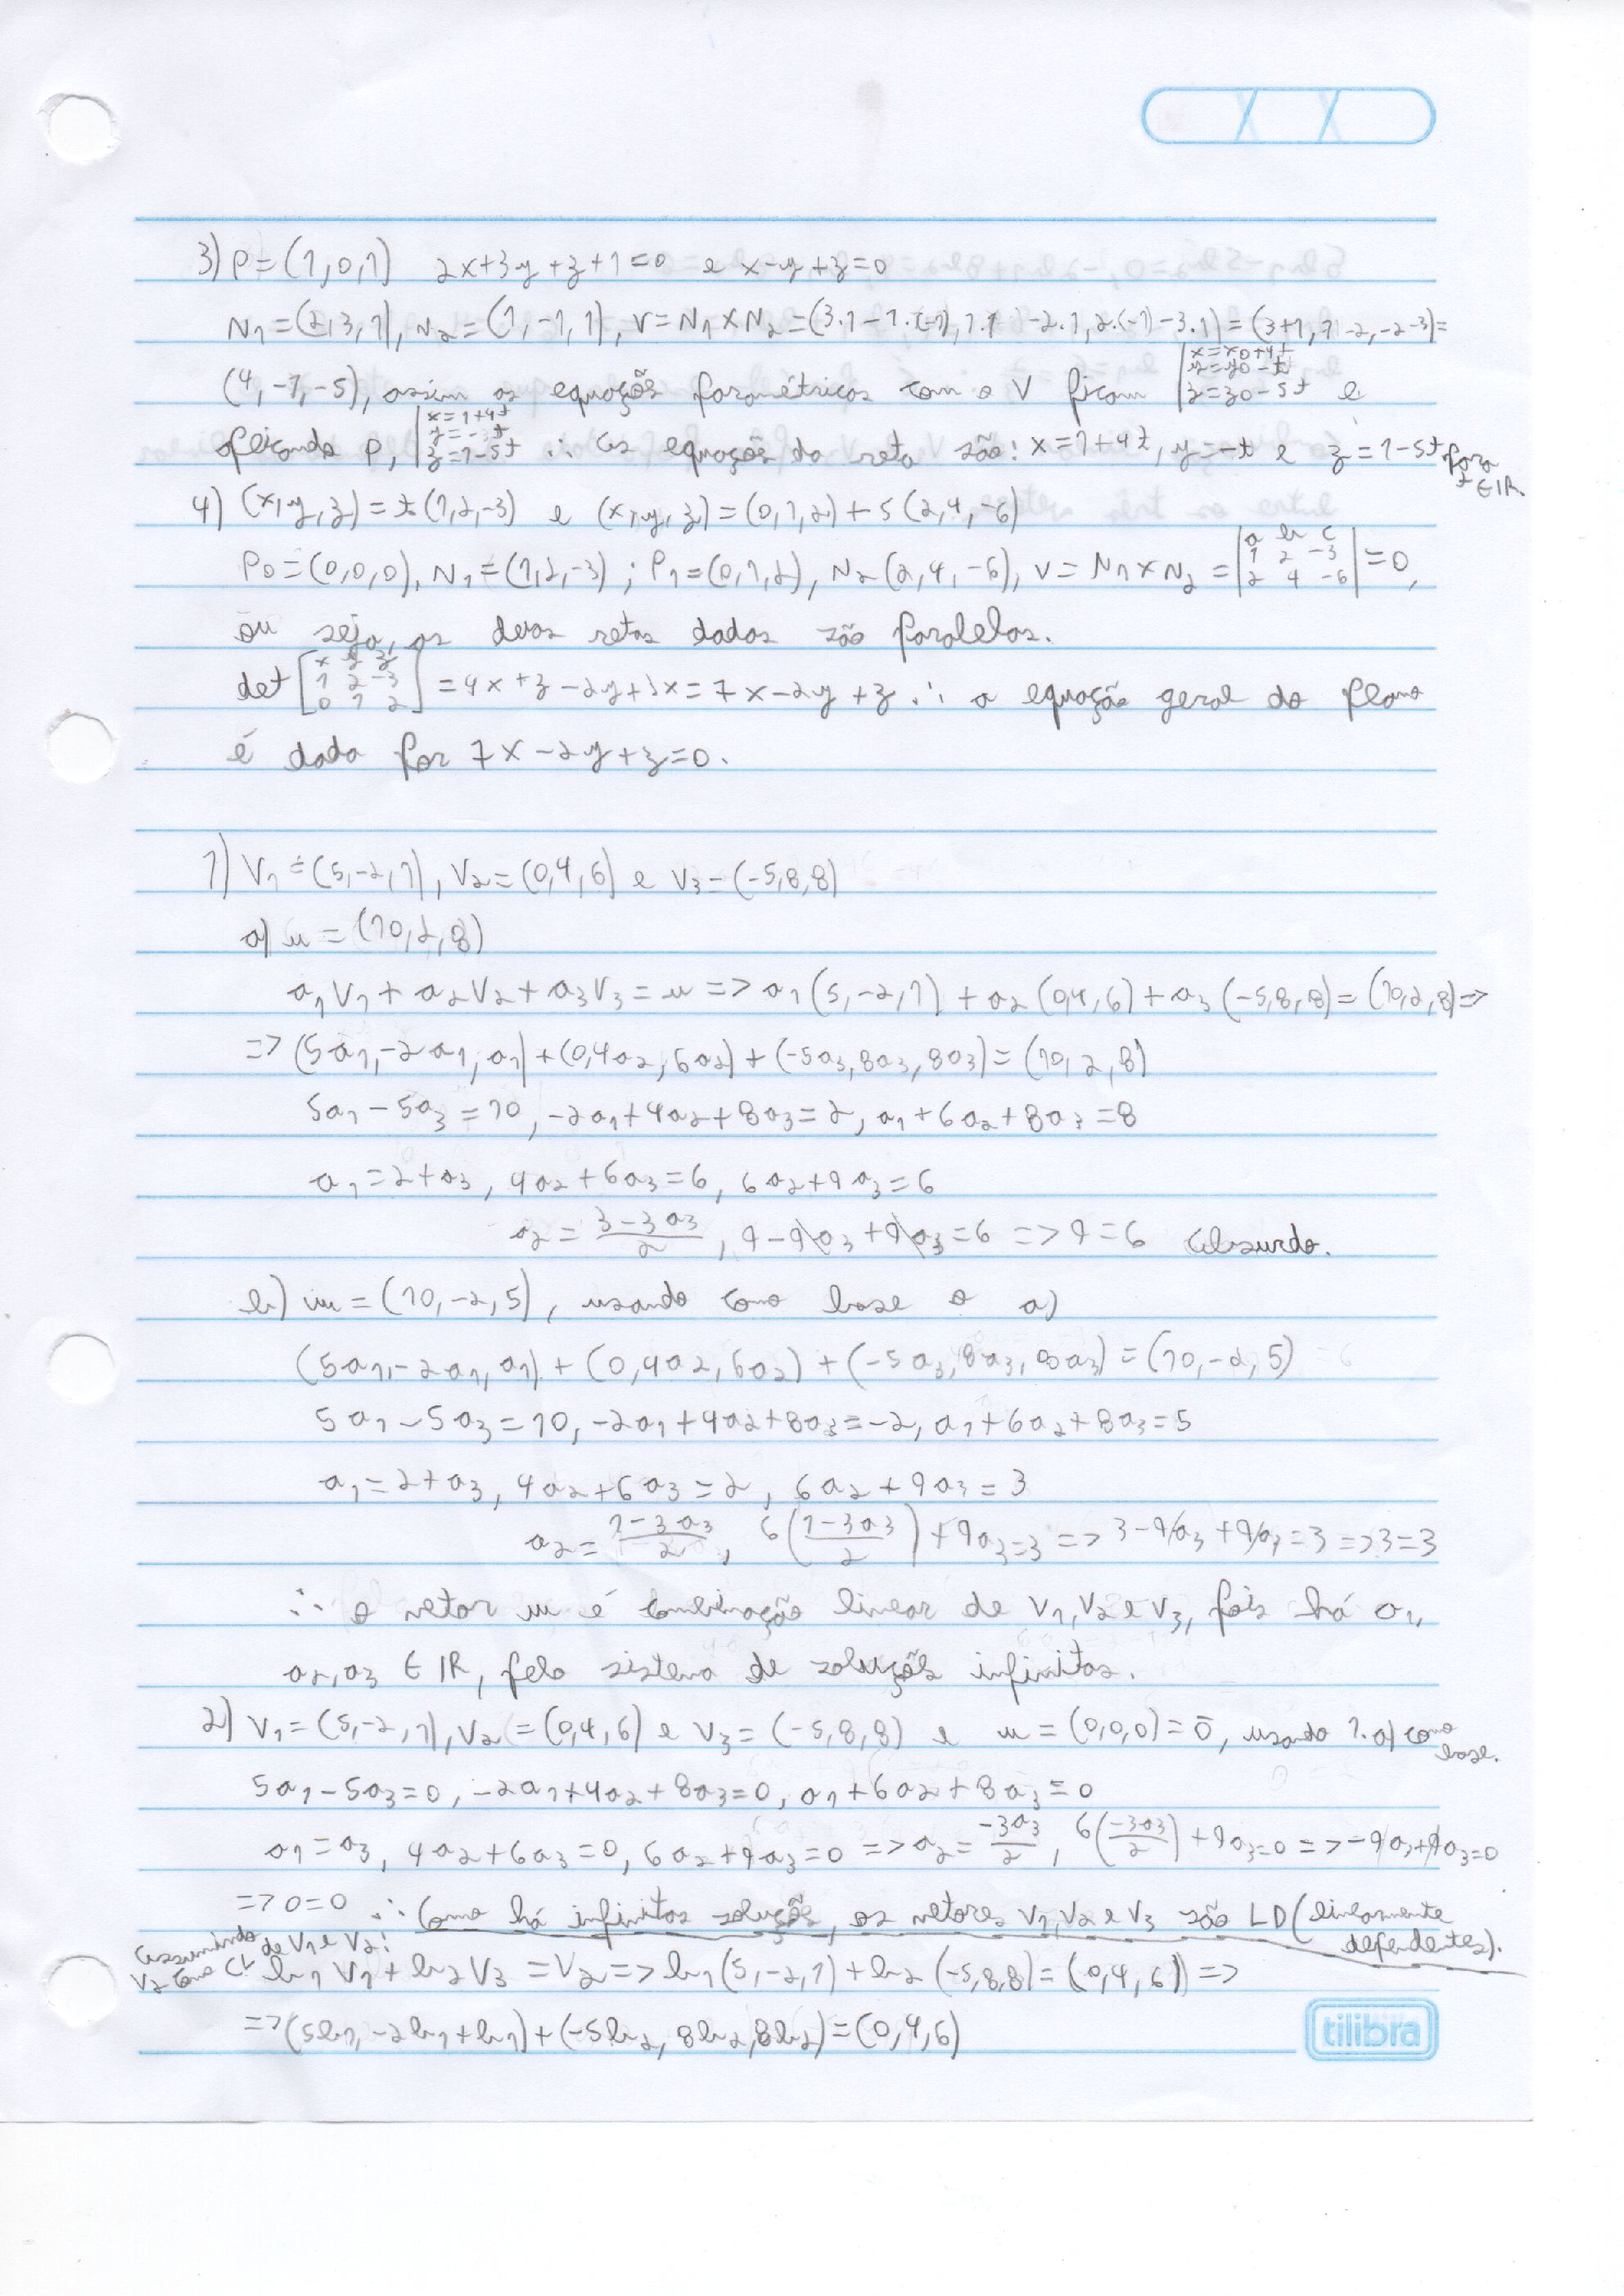 3) P=(1,0,1) 2x+3y+z+1=0 e x-y+z=0
N1=(2,3,1), N2=(1,-1,1), V=N1×N2=(3.1-1.(-1),1.1-2.1,2.(-1)-3.1)=(3+1,1-2,-2-3)=
(4,-1,-5), assim as equações paramétricas com o V ficam |x=x0+4t y=y0-t z=z0-5t e
aplicando P, |x=1+4t y=-t z=1-5t ∴ as equações da reta são: x=1+4t, y=-t e z=1-5t para t∈IR.
4) (x,y,z)=t(1,2,-3) e (x,y,z)=(0,1,2)+s(2,4,-6)
P0=(0,0,0), N1=(1,2,-3); P1=(0,1,2), N2(2,4,-6), V=N1×N2=|a b c 1 2 -3 2 4 -6|=0,
ou seja, as duas retas dadas são paralelas.
det[x y z 1 2 -3 0 1 2]=4x+z-2y+3x=7x-2y+z ∴ a equação geral do plano
é dada por 7x-2y+z=0.
1) V1=(5,-2,1), V2=(0,4,6) e V3=(-5,8,8)
a) u=(10,2,8)
a1V1+a2V2+a3V3=u => a1(5,-2,1)+a2(0,4,6)+a3(-5,8,8)=(10,2,8)=>
=> (5a1,-2a1,a1)+(0,4a2,6a2)+(-5a3,8a3,8a3)=(10,2,8)
5a1-5a3=10, -2a1+4a2+8a3=2, a1+6a2+8a3=8
a1=2+a3, 4a2+6a3=6, 6a2+9a3=6
a2=3-3a3/2, 9-9a3+9a3=6 => 9=6 Absurdo.
b) w=(10,-2,5), usando como base o a)
(5a1,-2a1,a1)+(0,4a2,6a2)+(-5a3,8a3,8a3)=(10,-2,5)
5a1-5a3=10, -2a1+4a2+8a3=-2, a1+6a2+8a3=5
a1=2+a3, 4a2+6a3=2, 6a2+9a3=3
a2=1-3a3/2, 6(1-3a3/2)+9a3=3 => 3-9a3+9a3=3 =>3=3
∴ o vetor w é combinação linear de V1,V2 e V3, pois há a1,
a2,a3 ∈ IR, pelo sistema de soluções infinitas.
2) V1=(5,-2,1), V2=(0,4,6) e V3=(-5,8,8) e u=(0,0,0)=0̄, usando 1.a) como base.
5a1-5a3=0, -2a1+4a2+8a3=0, a1+6a2+8a3=0
a1=a3, 4a2+6a3=0, 6a2+9a3=0 => a2=-3a3/2, 6(-3a3/2)+9a3=0 => -9a3+9a3=0
=> 0=0 ∴ Como há infinitas soluções, os vetores V1,V2 e V3 são LD (linearmente dependentes).
Assumindo V2 como CL de V1 e V2: b1V1+b2V3=V2 => b1(5,-2,1)+b2(-5,8,8)=(0,4,6) =>
=> (5b1,-2b1+b1)+(-5b2,8b2,8b2)=(0,4,6)
tilibra